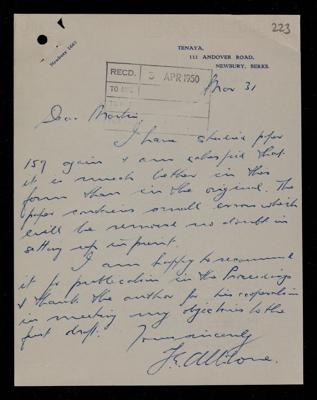 223
Newbury 1661
TENAYA,
111 ANDOVER ROAD,
NEWBURY, BERKS.
RECD. 3 APR 1950
TO
TO
Mar 31
Dear Martin,
I have studied paper
159 again & am satisfied that
it is much better in this
form than in the original. The
paper contains small errors which
will be removed no doubt in
setting up in print.
I am happy to recommend
it for publication in the Proceedings
& thank the author for his cooperation
in meeting my objections to the
first draft.
Yours sincerely